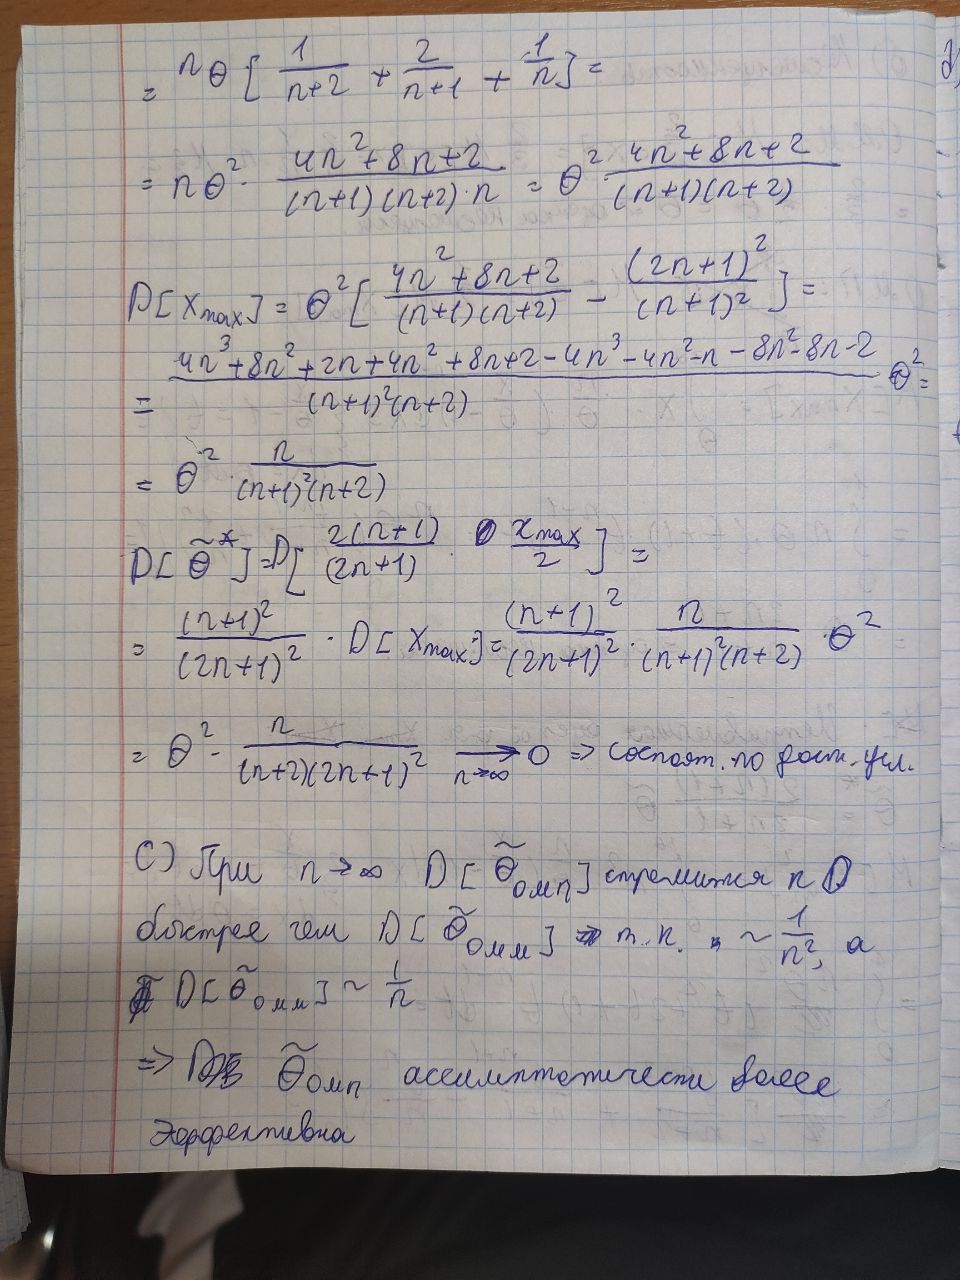 = nθ [ 1/(n+2) + 2/(n+1) + 1/n ] =
= nθ² · (4n²+8n+2)/((n+1)(n+2)·n) = θ² · (4n²+8n+2)/((n+1)(n+2))
D[x_max] = θ² [ (4n²+8n+2)/((n+1)(n+2)) − (2n+1)²/(n+1)² ] =
= (4n³+8n²+2n+4n²+8n+2−4n³−4n²−n−8n²−8n−2)/((n+1)²(n+2)) θ² =
= θ² · n/((n+1)²(n+2))
D[θ̃*] = D[ 2(n+1)/(2n+1) · x_max/2 ] =
= (n+1)²/(2n+1)² · D[x_max] = (n+1)²/(2n+1)² · n/((n+1)²(n+2)) · θ²
= θ² · n/((n+2)(2n+1)²) →(n→∞) 0 ⇒ состоят. по дост. усл.
c) При n→∞ D[θ̃омп] стремится к 0
быстрее чем D[θ̃омм] т.к. ~ 1/n², а
D[θ̃омм] ~ 1/n
=> θ̃омп ассимптотически более
эффективна